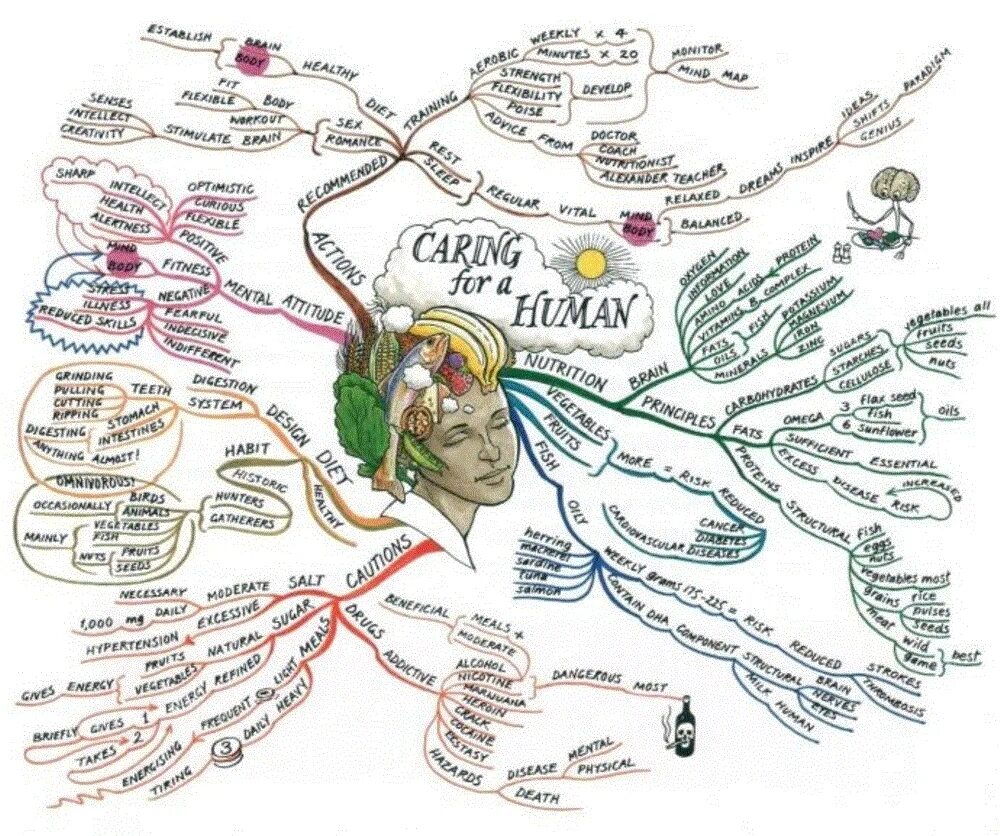 CARING
for a
HUMAN
ACTIONS
RECOMMENDED
DIET
HEALTHY
BRAIN
BODY
ESTABLISH
SEX
ROMANCE
BODY
FIT
FLEXIBLE
WORKOUT
STIMULATE BRAIN
SENSES
INTELLECT
CREATIVITY
TRAINING
AEROBIC
WEEKLY X 4
MINUTES X 20
STRENGTH
FLEXIBILITY
POISE
DEVELOP
MONITOR
MIND MAP
ADVICE FROM
DOCTOR
COACH
NUTRITIONIST
ALEXANDER TEACHER
REST
SLEEP
REGULAR VITAL
MIND
BODY
RELAXED DREAMS INSPIRE
BALANCED
IDEAS
SHIFTS PARADIGM
GENIUS
MENTAL ATTITUDE
POSITIVE
OPTIMISTIC
CURIOUS
FLEXIBLE
SHARP INTELLECT
HEALTH
ALERTNESS
FITNESS
MIND
BODY
NEGATIVE
STRESS
ILLNESS
REDUCED SKILLS
FEARFUL
INDECISIVE
INDIFFERENT
NUTRITION
BRAIN
OXYGEN
INFORMATION
LOVE
AMINO ACIDS PROTEIN
VITAMINS B COMPLEX
FATS
OILS
FISH
MINERALS
POTASSIUM
MAGNESIUM
IRON
ZINC
PRINCIPLES
CARBOHYDRATES
SUGARS
STARCHES
CELLULOSE
vegetables all
fruits
seeds
nuts
FATS
OMEGA
3 flax seed
fish
6 sunflower
oils
SUFFICIENT ESSENTIAL
EXCESS DISEASE RISK
INCREASED
PROTEINS
STRUCTURAL
fish
eggs
nuts
vegetables most
grains rice
pulses
seeds
meat wild
game
best
VEGETABLES
FRUITS
MORE = RISK REDUCED
CANCER
DIABETES
CARDIOVASCULAR DISEASES
FISH
OILY
herring
mackerel
sardine
tuna
salmon
WEEKLY grams 175-225 = RISK REDUCED
STROKES
THROMBOSIS
CONTAIN DHA COMPONENT STRUCTURAL
BRAIN
NERVES
EYES
MILK HUMAN
DIET
HEALTHY
DESIGN
DIGESTION
SYSTEM
TEETH
GRINDING
PULLING
CUTTING
RIPPING
STOMACH
INTESTINES
DIGESTING
ANYTHING ALMOST!
OMNIVOROUS!
HABIT
HISTORIC
HUNTERS
GATHERERS
OCCASIONALLY
BIRDS
ANIMALS
MAINLY
VEGETABLES
FISH
NUTS
FRUITS
SEEDS
CAUTIONS
SALT
MODERATE
NECESSARY
1,000 mg DAILY
EXCESSIVE
HYPERTENSION
SUGAR
NATURAL
FRUITS
VEGETABLES
GIVES ENERGY
REFINED
ENERGY
BRIEFLY GIVES 1
TAKES 2
MEALS
LIGHT
FREQUENT
ENERGISING
HEAVY
DAILY
3
TIRING
DRUGS
ADDICTIVE
BENEFICIAL
MEALS +
MODERATE
ALCOHOL
NICOTINE
MARIJUANA
HEROIN
CRACK
COCAINE
ECSTASY
DANGEROUS MOST
HAZARDS
DISEASE
MENTAL
PHYSICAL
DEATH